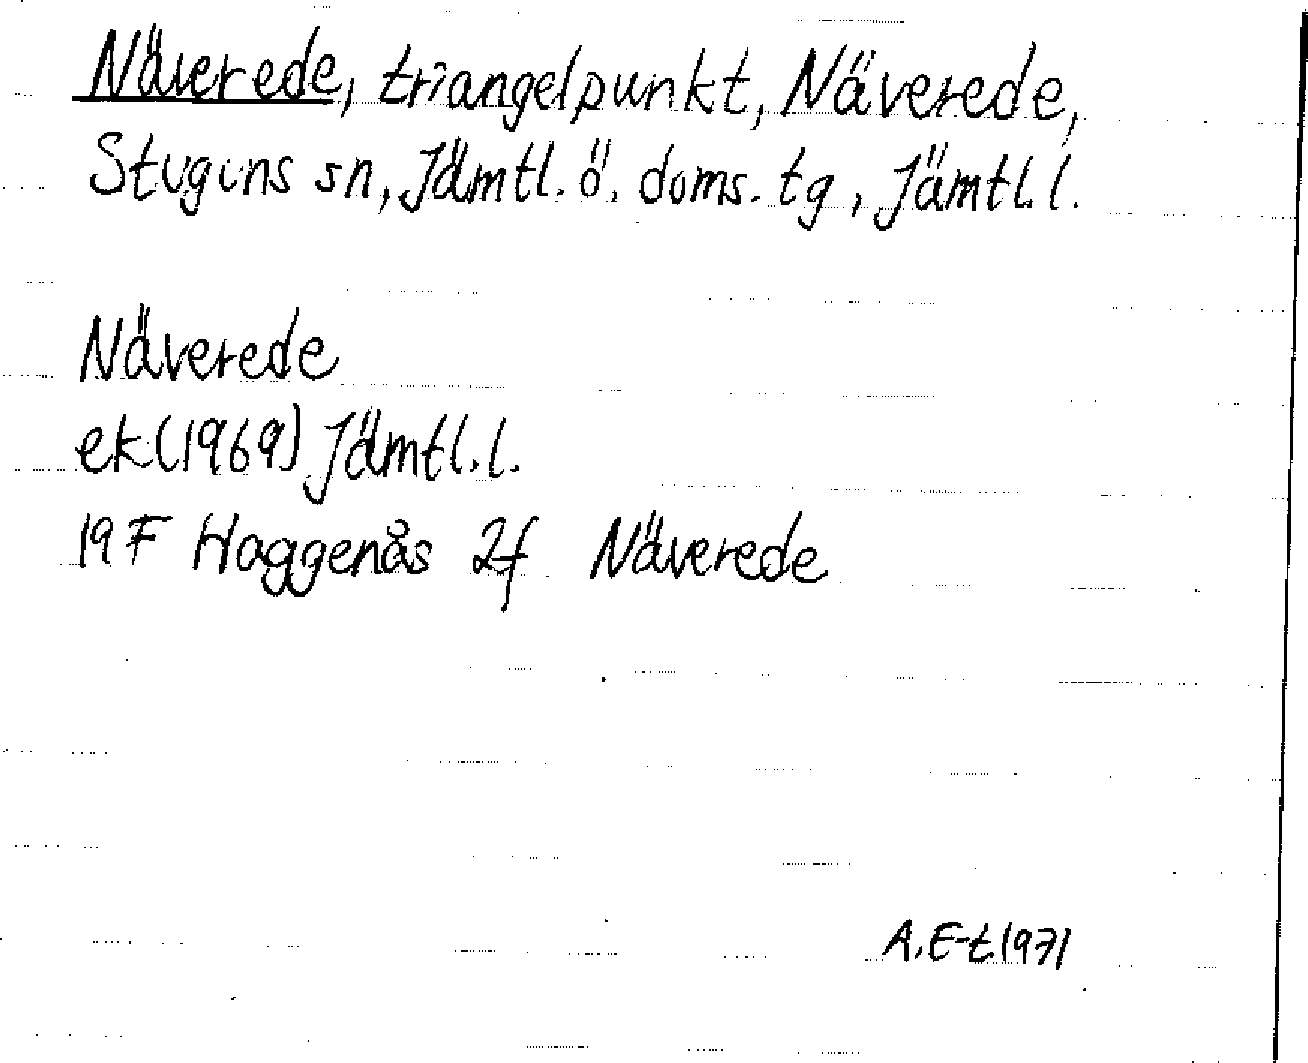 Näverede, triangelpunkt, Näverede,
Stuguns sn, Jämtl. ö. doms. tg, Jämtl. l.
Näverede
ek (1969) Jämtl. l.
19 F Haggenås 2f Näverede
A. E-t 1971